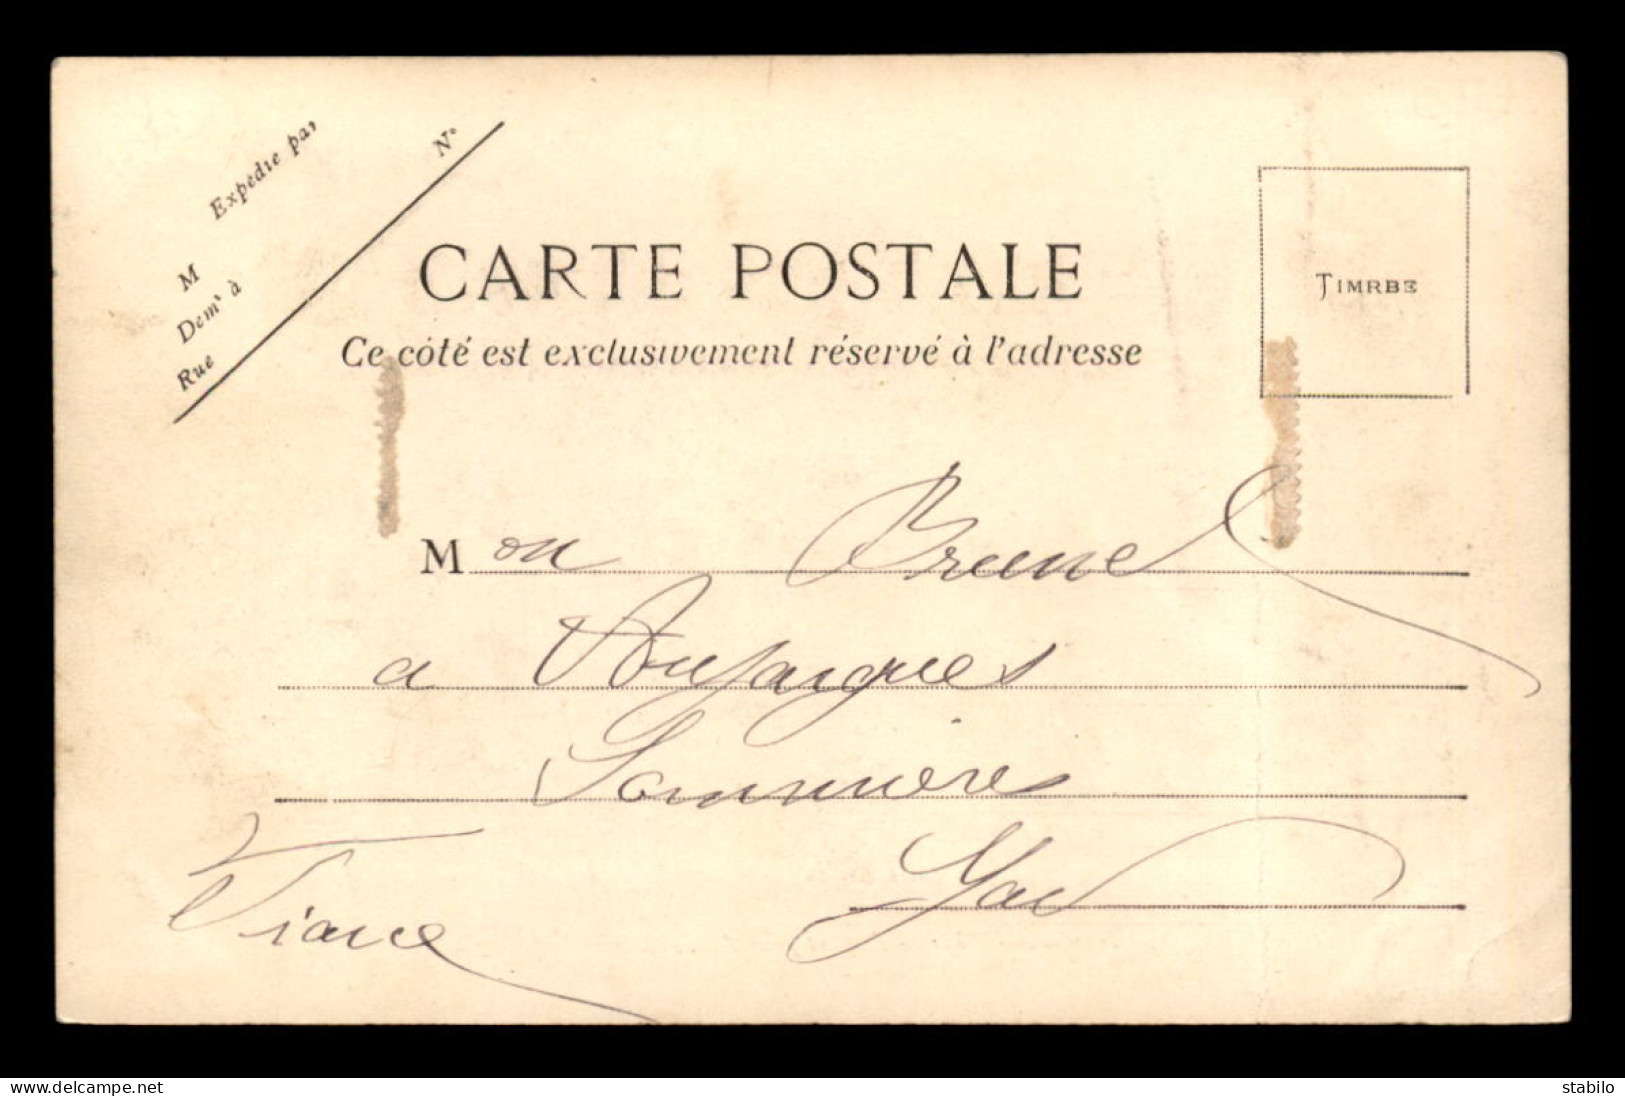 Expédié par
N°
M
Demt à
Rue
CARTE POSTALE
Ce côté est exclusivement réservé à l'adresse
TIMRBE
Mon Brunel
a Aujargues
Sommières
Gard
delcampe.net
stabilo